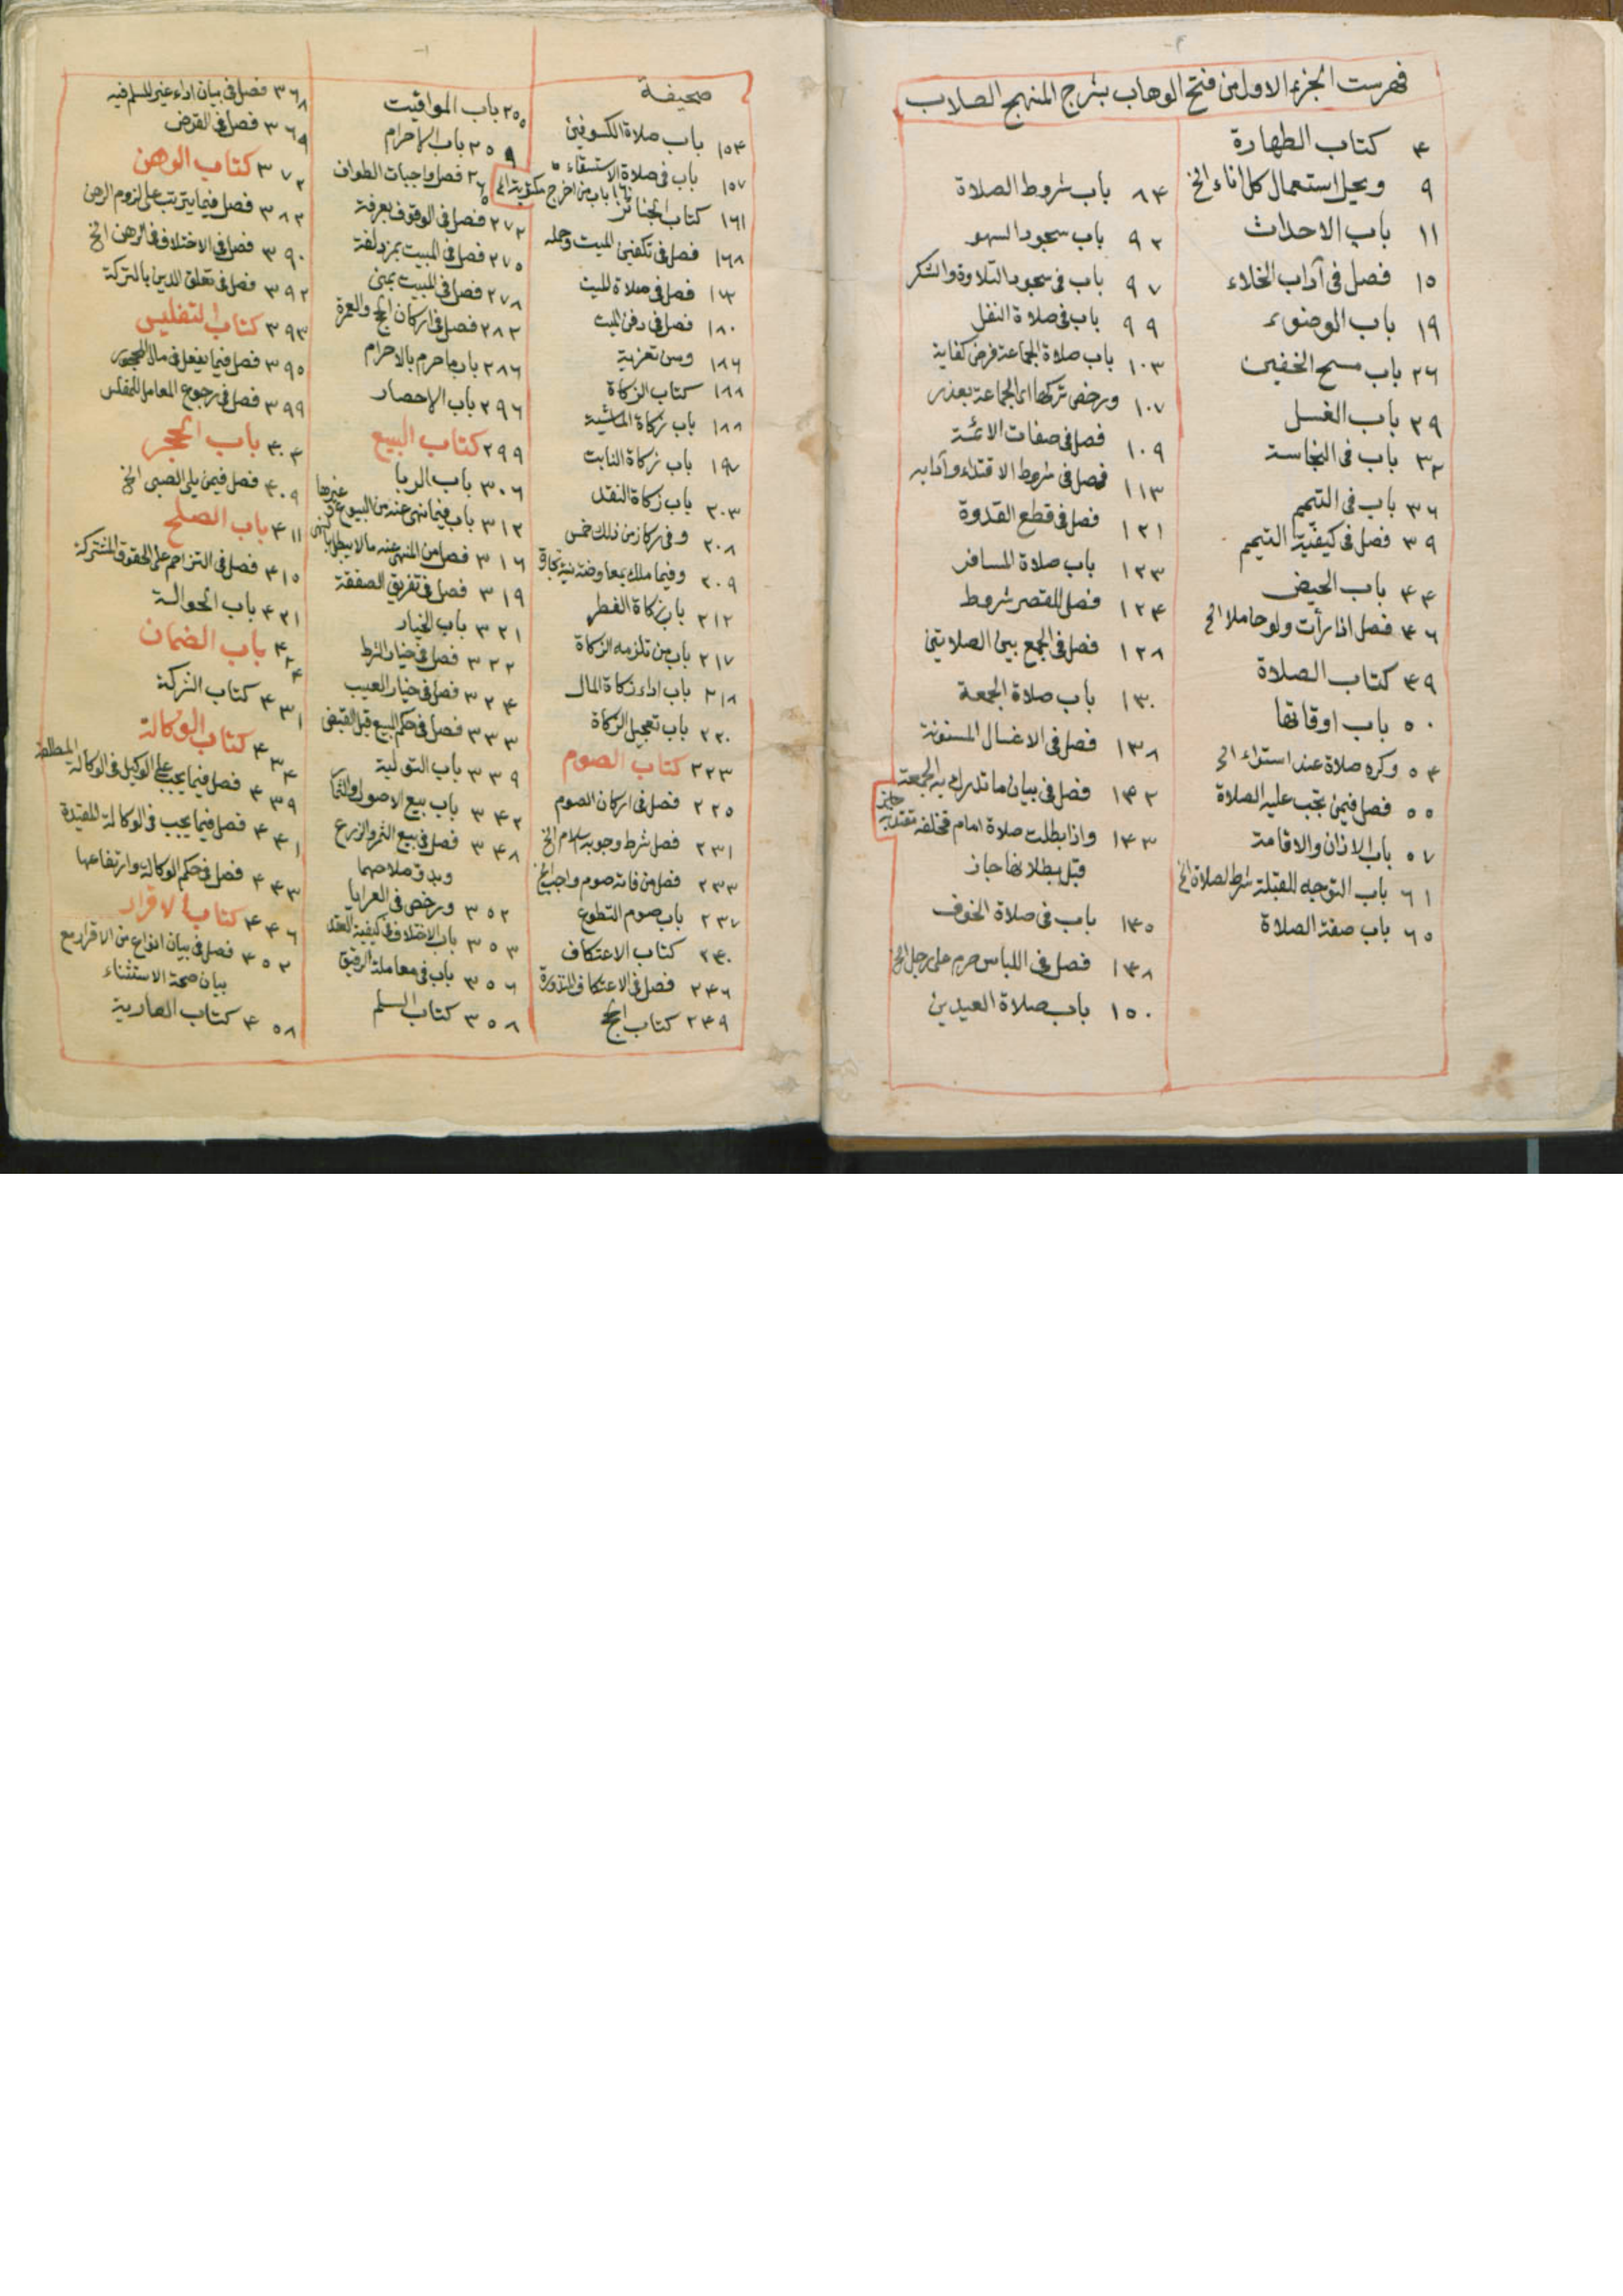 فهرست الجزء الاول من فتح الوهاب بشرح المنهج الطلاب
٤ كتاب الطهارة
٩ ويحل استعمال كل اناء الخ
١١ باب الاحداث
١٥ فصل في آداب الخلاء
١٩ باب الوضوء
٢٦ باب مسح الخفين
٢٩ باب الغسل
٣٢ باب في النجاسة
٣٦ باب في التيمم
٣٩ فصل في كيفية التيمم
٤٤ باب الحيض
٤٦ فصل اذا رأت ولو حاملا الخ
٤٩ كتاب الصلاة
٥٠ باب اوقاتها
٥٤ وكره صلاة عند استواء الخ
٥٥ فصل فيمن تجب عليه الصلاة
٥٧ باب الاذان والاقامة
٦١ باب التوجه للقبلة شرط لصلاة الخ
٦٥ باب صفة الصلاة
٨٤ باب شروط الصلاة
٩٢ باب سجود السهو
٩٧ باب في سجود التلاوة والشكر
٩٩ باب في صلاة النفل
١٠٣ باب صلاة الجماعة فرض كفاية
١٠٧ ورخص تركها اى الجماعة بعذر
١٠٩ فصل في صفات الائمة
١١٣ فصل في شروط الاقتداء وآدابه
١٢١ فصل في قطع القدوة
١٢٣ باب صلاة المسافر
١٢٤ فصل للقصر شروط
١٢٨ فصل في الجمع بين الصلاتين
١٣٠ باب صلاة الجمعة
١٣٨ فصل في الاغسال المسنونة
١٤٢ فصل في بيان ما تدرك به الجمعة
١٤٣ واذا بطلت صلاة امام فخلفه مقتد به
جايز
قبل بطلانها جاز
١٤٥ باب في صلاة الخوف
١٤٨ فصل في اللباس حرم على رجل الخ
١٥٠ باب صلاة العيدين
صحيفة
١٥٤ باب صلاة الكسوفين
١٥٧ باب في صلاة الاستسقاء
باب من اخرج مكتوبة الخ
١٦١ كتاب الجنائز
١٦٨ فصل في تكفين الميت وحمله
فصل في صلاة الميت
١٨٠ فصل في دفن الميت
١٨٦ وسن تعزية
١٨٨ كتاب الزكاة
١٨٨ باب زكاة الماشية
باب زكاة النابت
٢٠٣ باب زكاة النقد
٢٠٨ وفي ركاز من ذلك خمس
٢٠٩ وفيما ملك بمعاوضة نية تجارة
٢١٢ باب زكاة الفطر
٢١٧ باب من تلزمه الزكاة
٢١٨ باب اداء زكاة المال
٢٢٠ باب تعجيل الزكاة
٢٢٣ كتاب الصوم
٢٢٥ فصل في اركان الصوم
٢٣١ فصل شرط وجوبه اسلام الخ
٢٣٣ فصل من فاته صوم واجب الخ
٢٣٧ باب صوم التطوع
٢٤٠ كتاب الاعتكاف
٢٤٦ فصل في الاعتكاف المنذورة
٢٤٩ كتاب الحج
٢٥٥ باب المواقيت
٢٥٩ باب الاحرام
٢٦٥ فصل واجبات الطواف
٢٧٢ فصل في الوقوف بعرفة
٢٧٥ فصل في المبيت بمزدلفة
٢٧٨ فصل في المبيت بمنى
٢٨٢ فصل في اركان الحج والعمرة
٢٨٦ باب ما حرم بالاحرام
٢٩٦ باب الاحصار
٢٩٩ كتاب البيع
٣٠٦ باب الربا
٣١٢ باب فيما نهى عنه من البيوع وغيرها
٣١٦ فصل من المنهي عنه ما لا يبطل بالنهي
٣١٩ فصل في تفريق الصفقة
٣٢١ باب الخيار
٣٢٢ فصل في خيار الشرط
٣٢٤ فصل في خيار العيب
٣٣٣ فصل في حكم المبيع قبل القبض
٣٣٩ باب التولية
٣٤٢ باب بيع الاصول والثمار
٣٤٨ فصل في بيع الثمر والزرع
وبدو صلاحهما
٣٥٢ ورخص في العرايا
٣٥٣ باب الاختلاف في كيفية العقد
٣٥٦ باب في معاملة الرقيق
٣٥٨ كتاب السلم
٣٦٨ فصل في بيان اداء غير المسلم فيه
٣٦٩ فصل في القرض
٣٧٢ كتاب الرهن
٣٨٢ فصل فيما يترتب على لزوم الرهن
٣٩٠ فصل في الاختلاف في الرهن الخ
٣٩٢ فصل في تعلق الدين بالتركة
٣٩٣ كتاب التفليس
٣٩٥ فصل فيما يفعل في مال المحجور
٣٩٩ فصل في رجوع المعامل للمفلس
٤٠٣ باب الحجر
٤٠٩ فصل فيمن يلي الصبي الخ
٤١١ باب الصلح
٤١٥ فصل في التزاحم على الحقوق المشتركة
٤٢١ باب الحوالة
٤٢٤ باب الضمان
٤٣١ كتاب الشركة
٤٣٤ كتاب الوكالة
٤٣٩ فصل فيما يجب على الوكيل في الوكالة المطلقة
٤٤١ فصل فيما يجب في الوكالة المقيدة
٤٤٣ فصل في حكم الوكالة وارتفاعها
٤٤٦ كتاب الاقرار
٤٥٢ فصل في بيان انواع من الاقرار مع
بيان صحة الاستثناء
٤٥٨ كتاب العارية